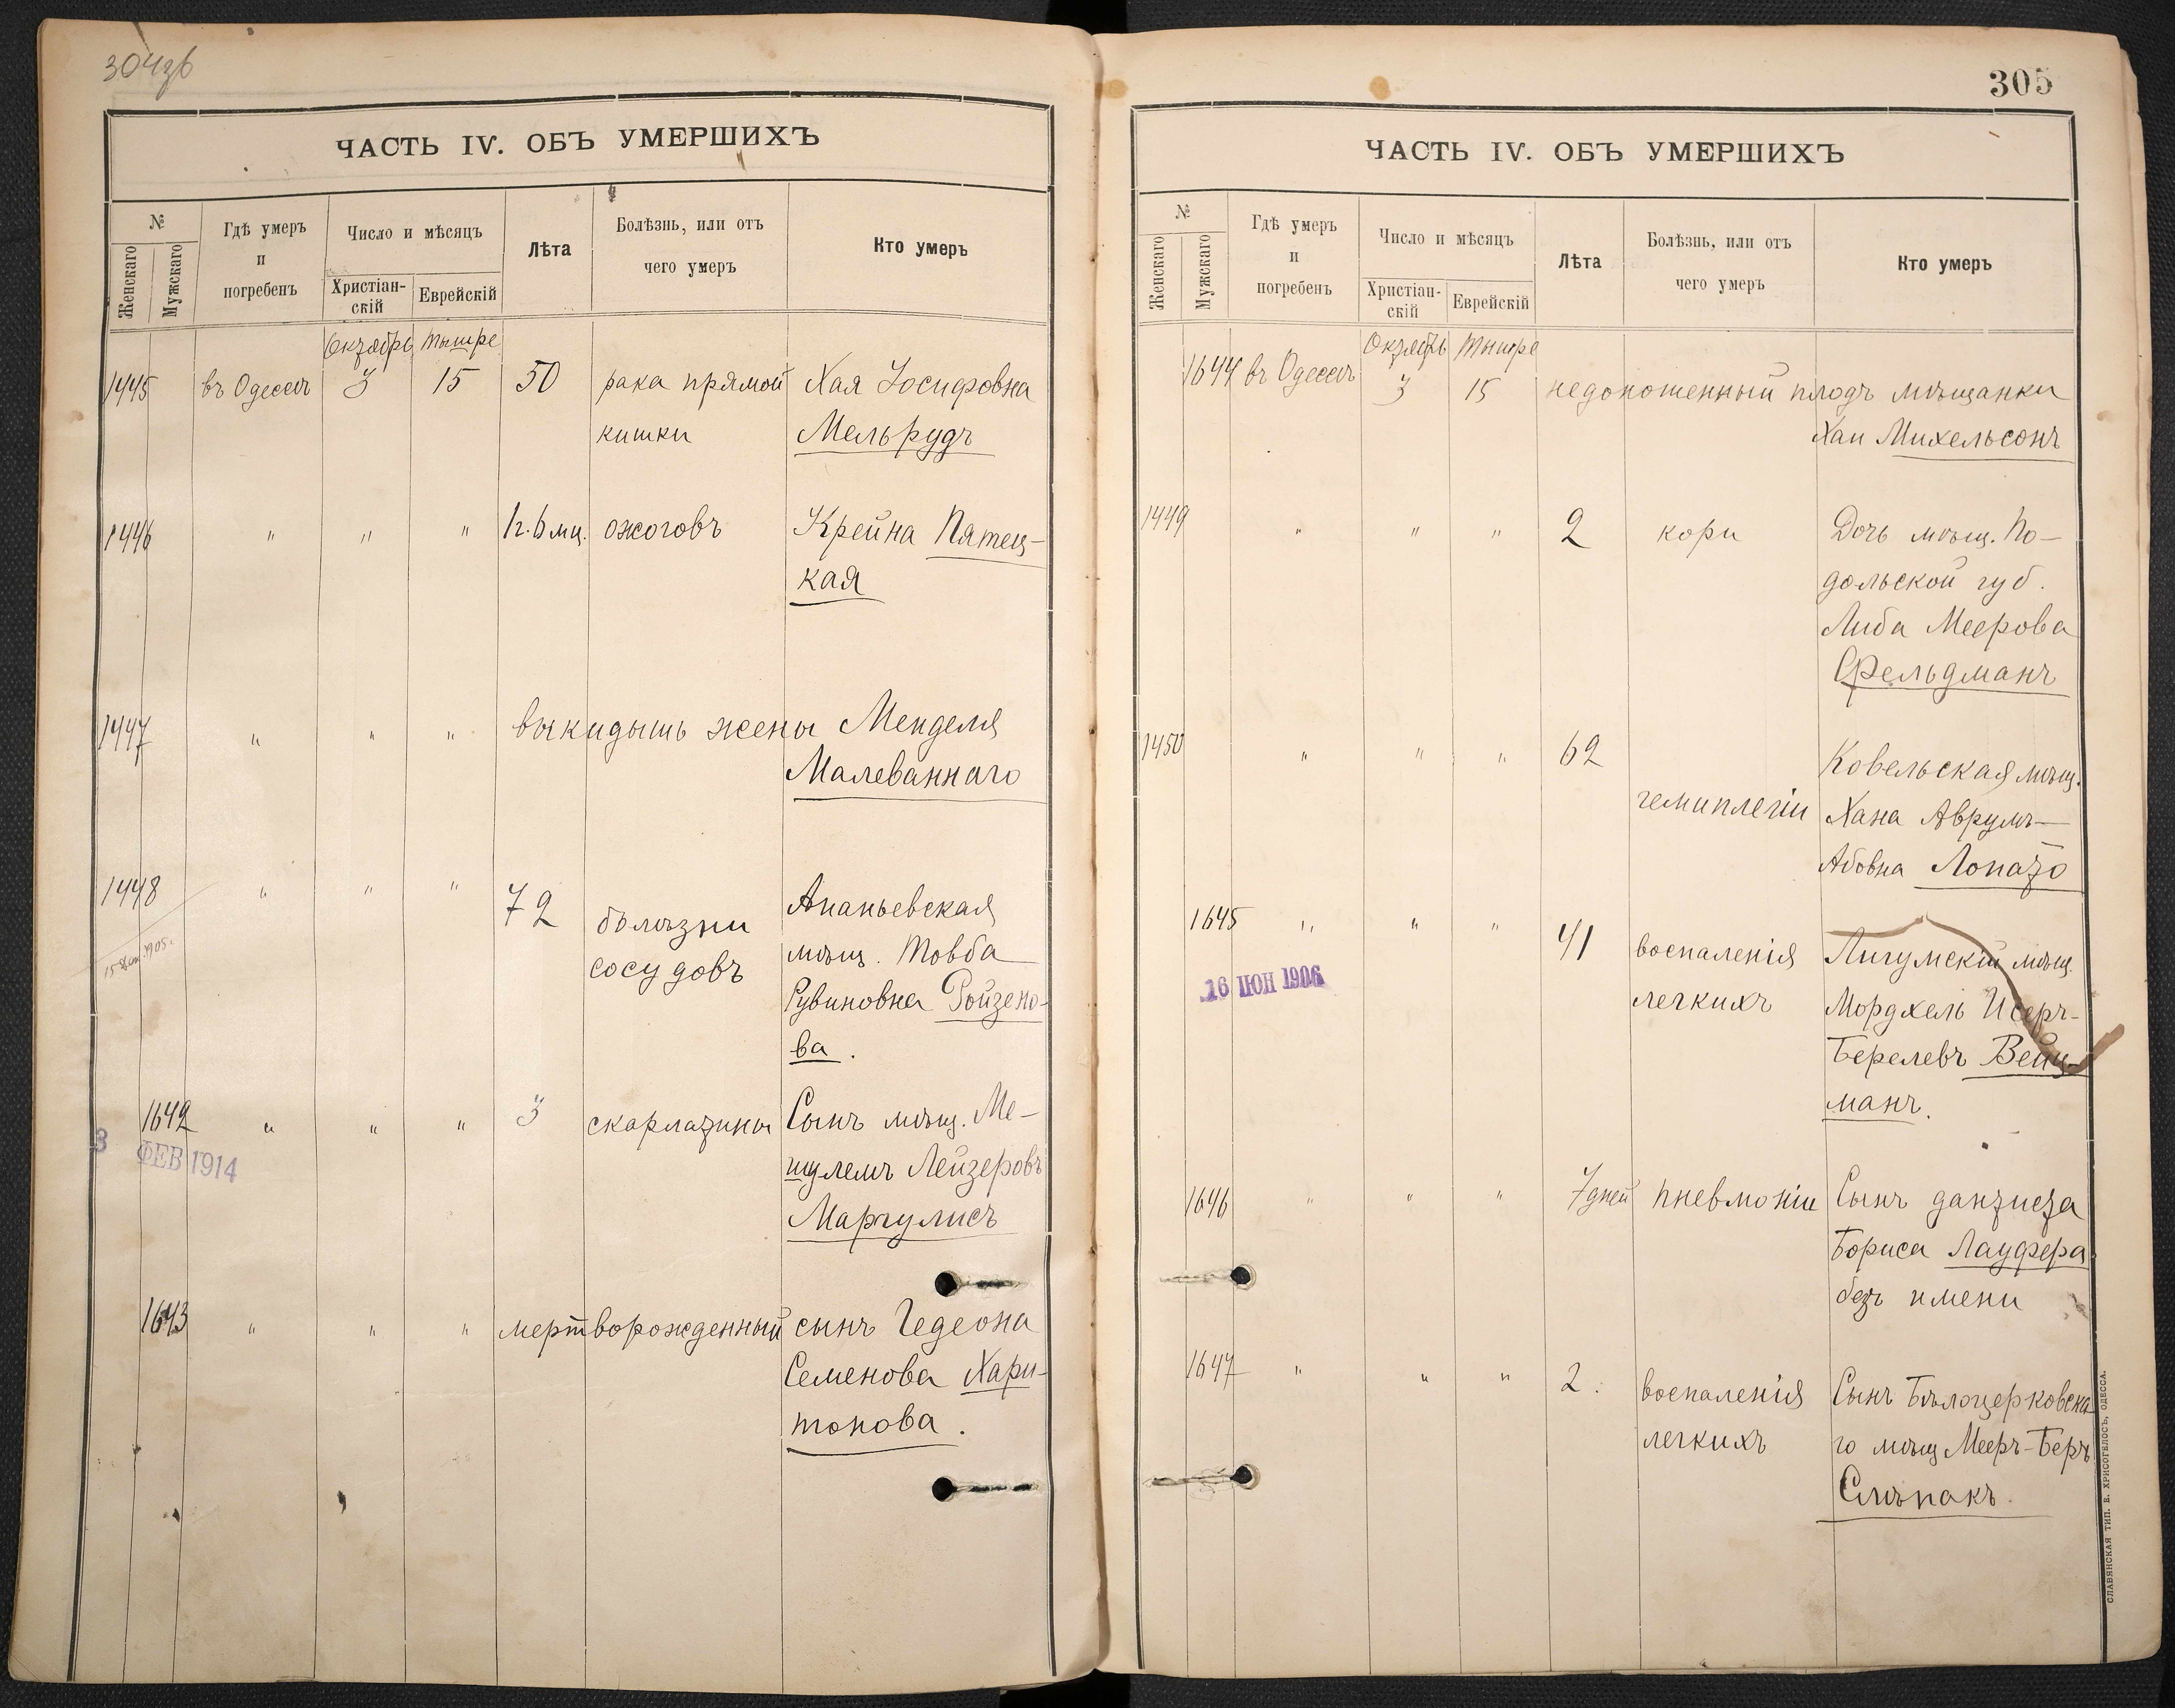 304зб
ЧАСТЬ IV. ОБЪ УМЕРШИХЪ
№
Женскаго
Мужскаго
Гдѣ умеръ
и
погребенъ
Число и мѣсяцъ
Христіан-
скій
Еврейскій
Лѣта
Болѣзнь, или отъ
чего умеръ
Кто умеръ
Октябрь Тышре
1445 въ Одессѣ 3 15 50 рака прямой Хая Іосифовна
кишки Мельрудъ
1446 " " " 1г. 6 мц. ожоговъ Крейна Пятец-
кая
1447 " " " выкидышь жены Менделя
Малеваннаго
1448 " " " 72 болѣзни Ананьевская
сосудовъ мѣщ. Товба
Рувиновна Ройзено-
ва.
1642 " " " 3 скарлатины Сынъ мѣщ. Ме-
3 ФЕВ 1914
шулемъ Лейзеровъ
Маргулисъ
1643 " " " мертворожденный сынъ Гедеона
Семенова Хари-
тонова.
305
ЧАСТЬ IV. ОБЪ УМЕРШИХЪ
№
Женскаго
Мужскаго
Гдѣ умеръ
и
погребенъ
Число и мѣсяцъ
Христіан-
скій
Еврейскій
Лѣта
Болѣзнь, или отъ
чего умеръ
Кто умеръ
Октябрь Тышре
1644 въ Одессѣ 3 15 недоношенный плодъ мѣщанки
Хаи Михельсонъ
1449 " " " 2 кори Дочь мѣщ. По-
дольской губ.
Либа Меерова
Фельдманъ
1450 " " " 62 Ковельская мѣщ.
гемиплегіи Хана Аврумъ-
Абовна Лопато
1645 " " " 41 воспаленія Лигумскій мѣщ.
16 ІЮН 1906
легкихъ Мордхель Исеръ-
Берелевъ Вейц-
манъ.
1646 " " " 7 дней пневмоніи Сынъ дантиста
Бориса Лауфера
безъ имени
1647 " " " 2. воспаленія Сынъ Бѣлоцерковска-
легкихъ го мѣщ Мееръ-Беръ
Слѣпакъ.
СЛАВЯНСКАЯ ТИП. Е. ХРИСОГЕЛОСЪ, ОДЕССА.